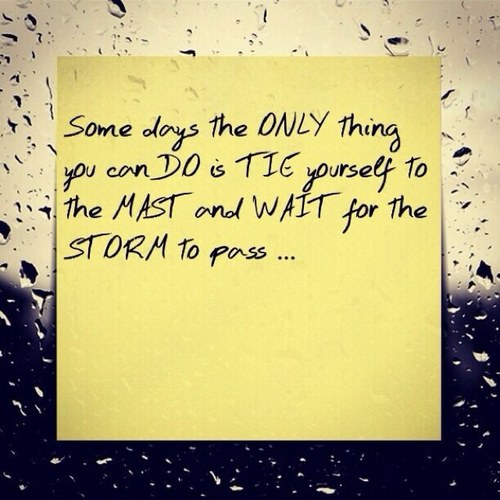 Some days the ONLY thing
you can DO is TIE yourself to
the MAST and WAIT for the
STORM to pass ...